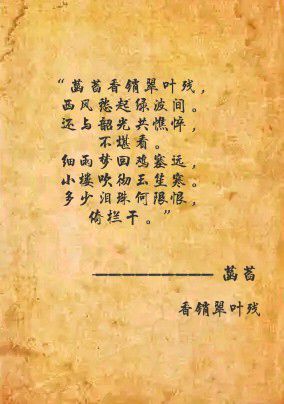 “菡萏香销翠叶残，
西风愁起绿波间。
还与韶光共憔悴，
不堪看。
细雨梦回鸡塞远，
小楼吹彻玉笙寒。
多少泪珠何限恨，
倚栏干。”
——————— 菡萏
香销翠叶残